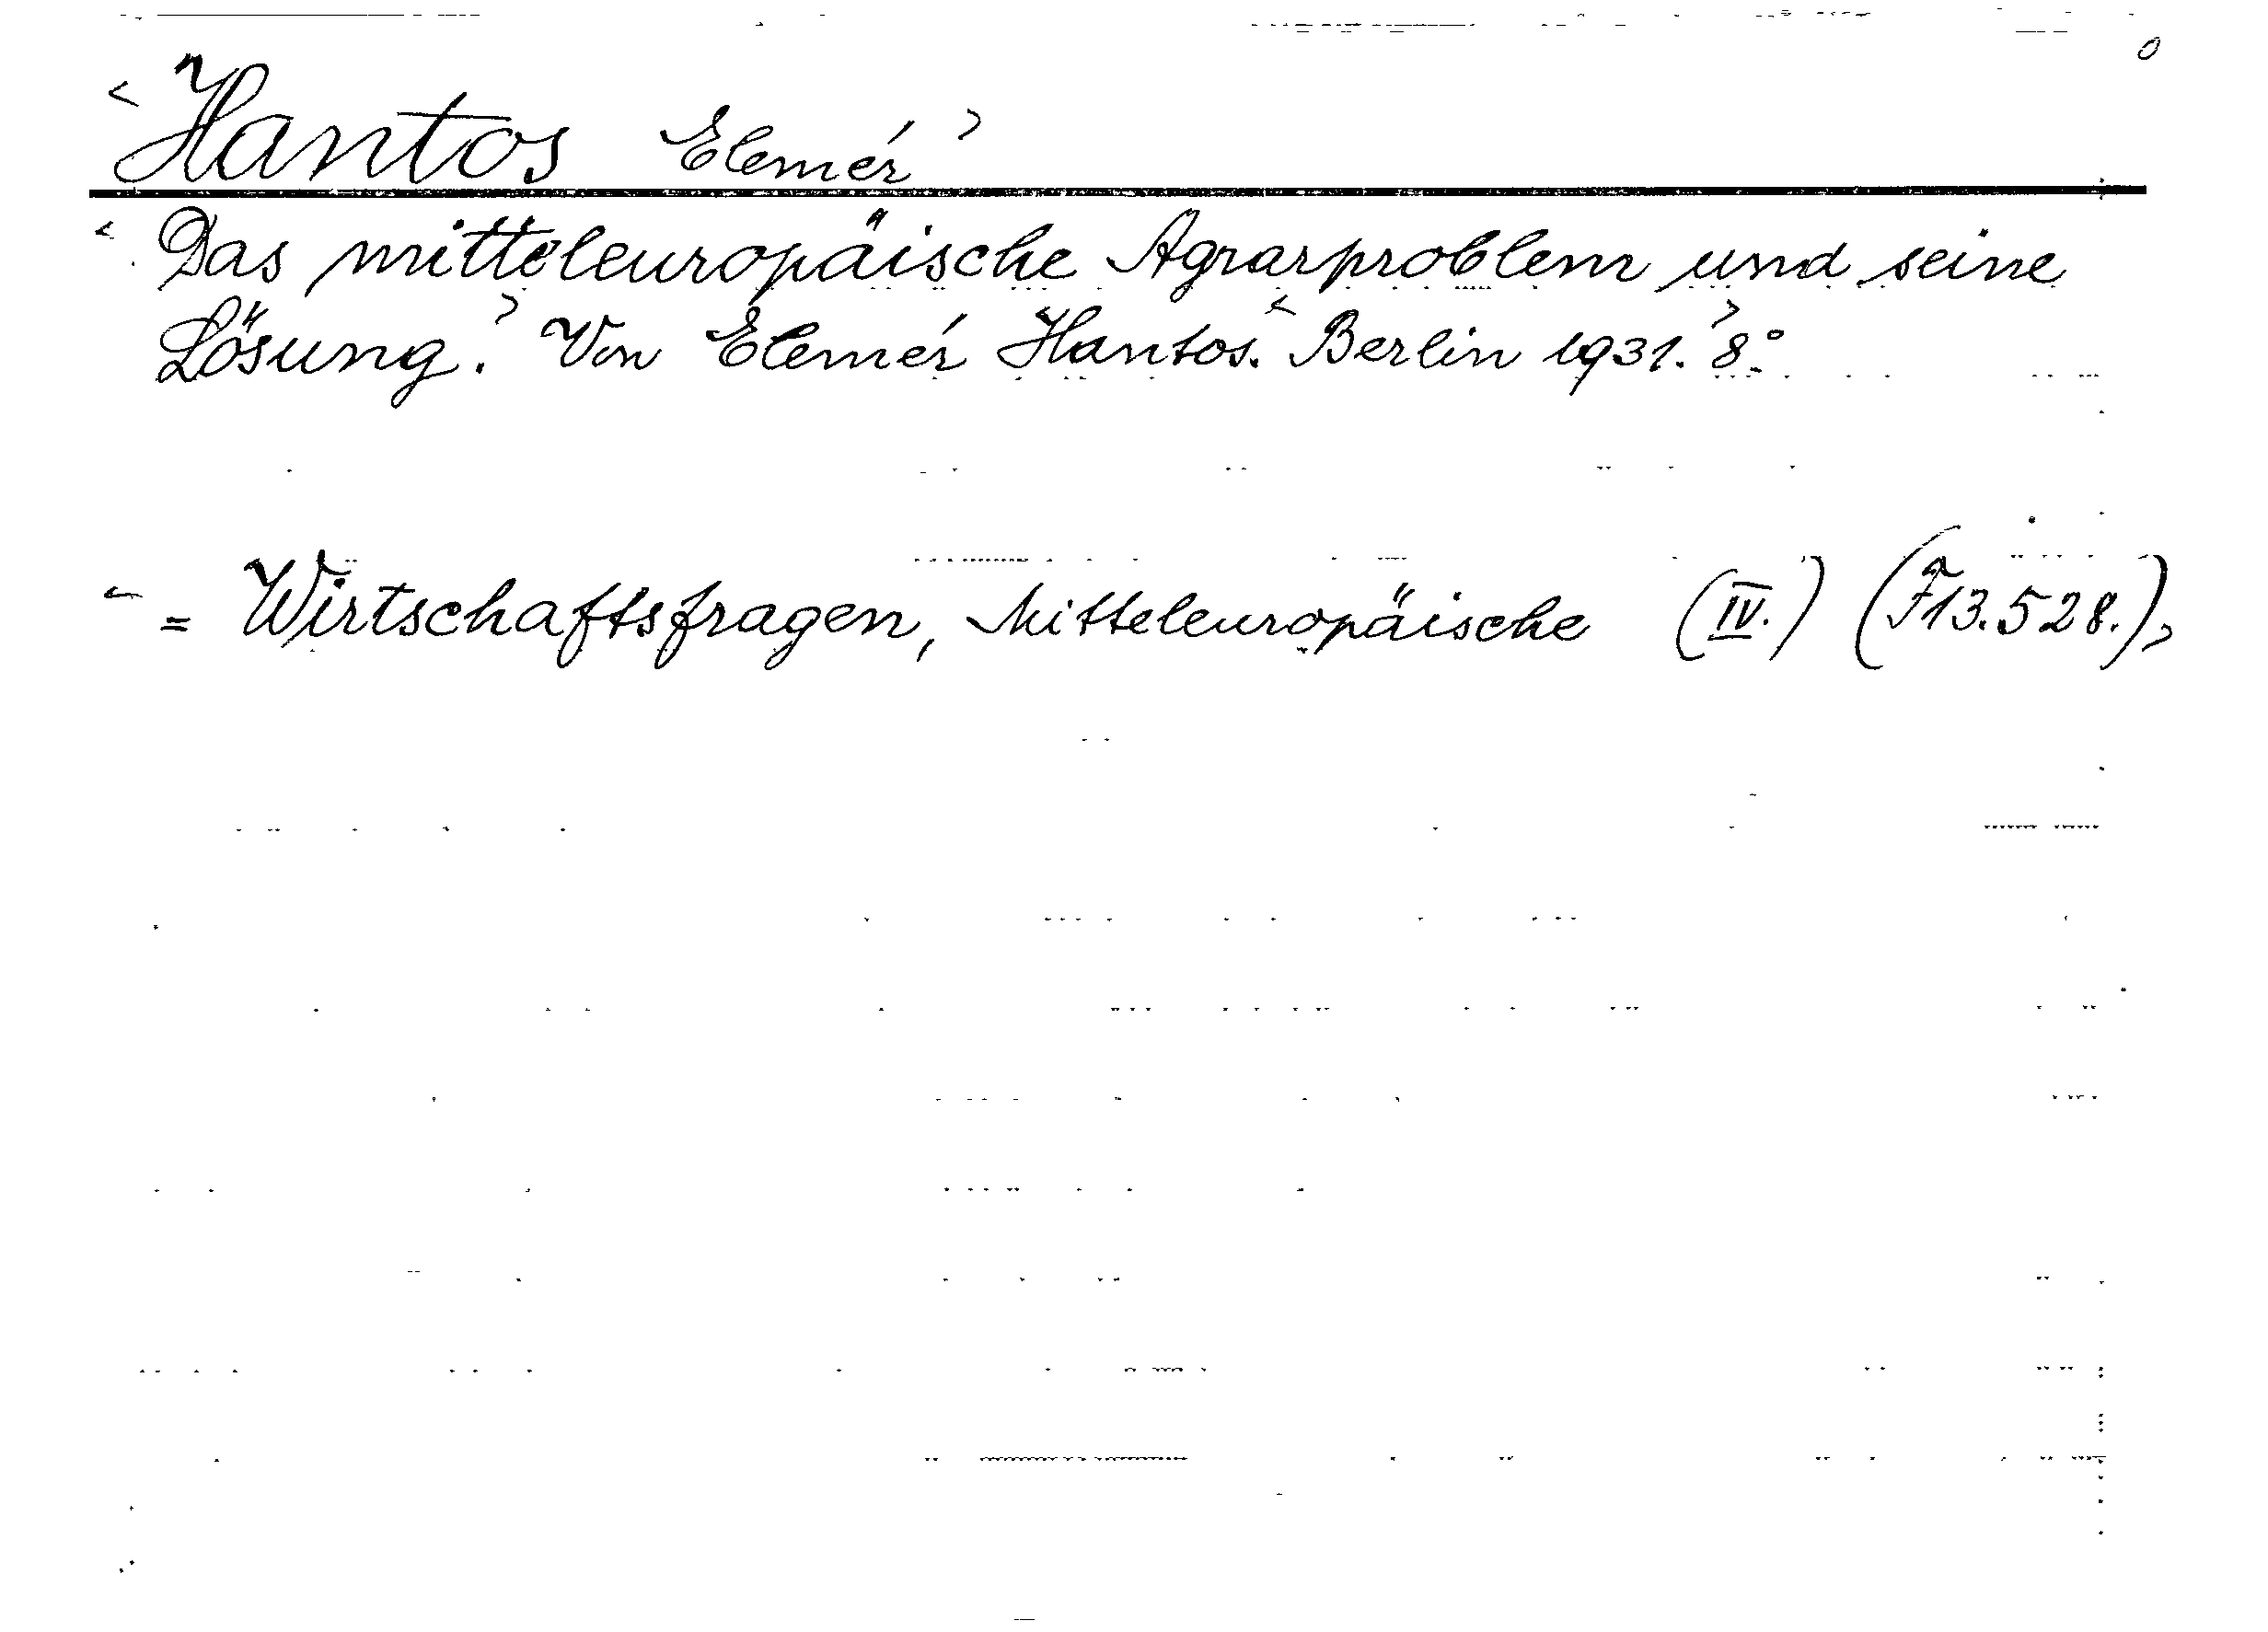 <Hantos Elemér>
<Das mitteleuropäische Agrarproblem und seine
Lösung.> Von Elemér Hantos. <Berlin 1931.> 8.°
<= Wirtschaftsfragen, Mitteleuropäische (IV.) (F13.528.)>